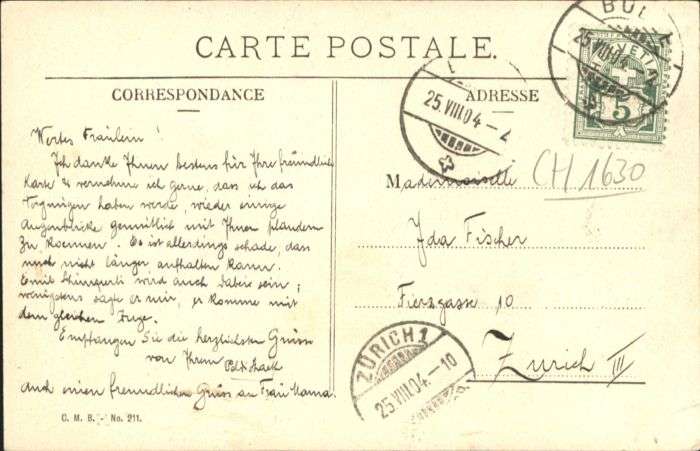 CARTE POSTALE.
CORRESPONDANCE
ADRESSE
BUL
25.VIII.04
HELVETIA
5
25.VIII.04-2
CH 1630
Wertes Fräulein!
Ich danke Ihnen bestens für Ihre freundliche
Karte & vernehme ich gerne, dass ich das
Vergnügen haben werde, wieder einige
Augenblicke gemütlich mit Ihnen plaudern
zu koennen. Es ist allerdings schade, dass
mich nicht länger aufhalten kann.
Emil wird auch dabei sein;
wenigstens sagte er mir, er komme mit
dem gleichen Zuge.
Empfangen Sie die herzlichsten Grüsse
von Ihrem
Auch einen freundlichen Gruss an Frau Mama.
Mademoiselle
Ida Fischer
Fierzgasse 10
Zürich III
ZÜRICH 1
25.VIII.04.-10
C. M. B. - No. 211.